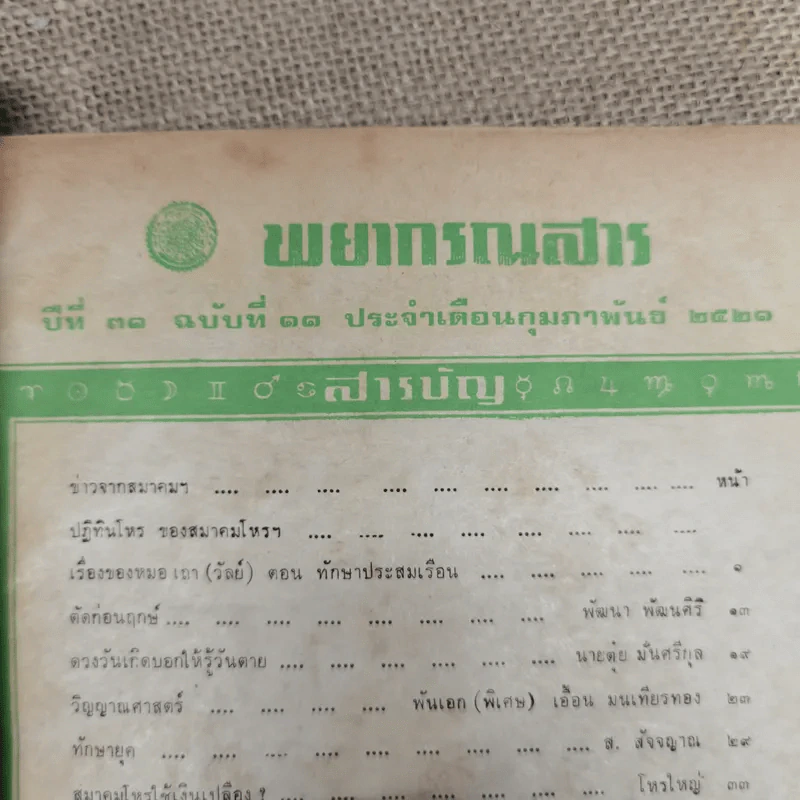 พยากรณสาร
ปีที่ ๓๑ ฉบับที่ ๑๑ ประจำเดือนกุมภาพันธ์ ๒๕๒๑
สารบัญ
ข่าวจากสมาคมฯ .... .... .... .... .... .... .... .... .... .... หน้า
ปฏิทินโหร ของสมาคมโหรฯ .... .... .... .... .... .... .... ....
เรื่องของหมอ เถา (วัลย์) ตอน ทักษาประสมเรือน .... .... .... .... .... ๑
ตัดก่อนฤกษ์ .... .... .... .... .... .... .... .... พัฒนา พัฒนศิริ ๑๓
ดวงวันเกิดบอกให้รู้วันตาย .... .... .... .... .... .... นายตุ๋ย มั่นศรีกุล ๑๙
วิญญาณศาสตร์ .... .... .... .... พันเอก (พิเศษ) เอื้อน มนเทียรทอง ๒๓
ทักษายุค .... .... .... .... .... .... .... .... .... ส. สัจจญาณ ๒๙
สมาคมโหรใช้เงินเปลือง ? .... .... .... .... .... .... .... โหรใหญ่ ๓๓